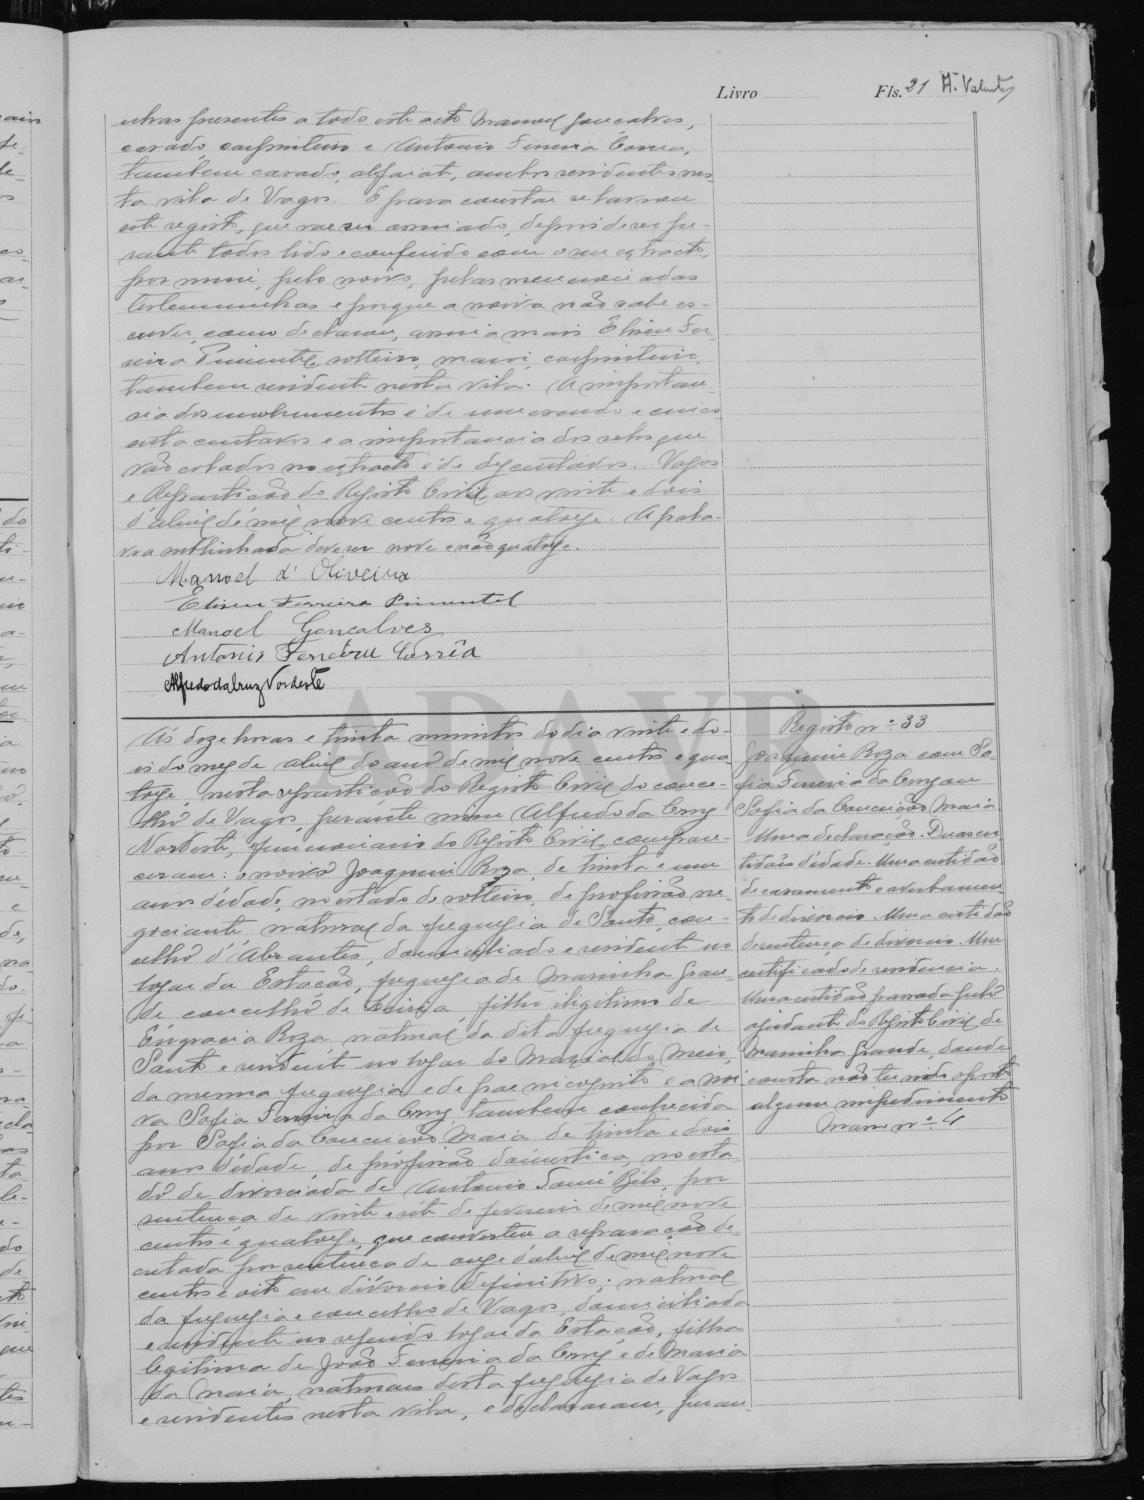 Livro Fls. 21 A. Valente
nhas presentes a todo este acto Manoel Gonçalves,
casado, carpinteiro e Antonio Ferreira Correa,
tambem casado, alfaiate, ambos residentes nes-
ta vila de Vagos. E para constar se lavrou
este registo, que vae ser assinado, depois de ser pe-
rante todos lido e conferido com o seu extracto,
por mim, pelo noivo, pelas mencionadas
testemunhas e porque a noiva não sabe es-
crever, como declarou, assina mais Eliseu Fer-
reira Pimentel, solteiro, maior, carpinteiro,
tambem residente nesta vila. A importan-
cia dos emolumentos é de um escudo e cinco
enta centavos e a importancia dos selos que
vão colados no extracto é de dez centavos. Vagos
e Repartição do Registo Civil aos vinte e dois
d'abril de mil nove centos e quatorze. A pala-
vra sublinhada deve ser nove e não quatorze.
Manoel d'Oliveira
Eliseu Ferreira Pimentel
Manoel Gonçalves
Antonio Ferreira Corrêa
Alfredo da Cruz Nordeste
ADAVR
Ás doze horas e trinta minutos do dia vinte e do-
is do mez de abril do ano de mil nove centos e qua-
torze, nesta repartição do Registo Civil do conce-
lho de Vagos, perante mim Alfredo da Cruz
Nordeste, funcionario do Registo Civil, compare-
ceram: o noivo Joaquim Roza, de trinta e um
anos d'edade, no estado de solteiro, de profissão ne-
gociante, natural da freguezia de Souto, con-
celho d'Abrantes, domiciliado e residente no
logar da Estação, freguezia de Marinha Gran-
de concelho de Leiria, filho ilegitimo de
Engracia Roza natural da dita freguezia de
Souto e residente no logar do do Meio,
da mesma freguezia e de pae incognito e a noi
va Sofia Ferreira da Cruz tambem conhecida
por Sofia da Conceição Maia de trinta e dois
anos d'edade, de profissão domestica, no esta
do de divorciada de Antonio Jamé Bilo, por
sentença de vinte e sete de fevereiro de mil nove
centos e quatorze, que converteu a separação de-
cretada por sentença de onze d'abril de mil nove
centos e oito em divorcio definitivo; natural
da freguezia e concelho de Vagos, domiciliada
e residente no referido logar da Estação, filha
legitima de João Ferreira da Cruz e de Maria
da Maia, naturais desta freguezia de Vagos
e residentes nesta vila, e declararam, peran-
Registo n.º 33
Joaquim Roza com So
fia Ferreira da Cruz ou
Sofia da Conceição Maia
Uma declaração. Duas cer
tidões d'edade. Uma certidão
de casamento e averbamen-
to de divorcio. Uma certidão
de sentença de divorcio. Um
certificado de residencia.
Uma certidão passada pelo
ajudante do Registo Civil de
Marinha Grande, donde
consta não ter sido oposto
algum impedimento
Maço n.º 4